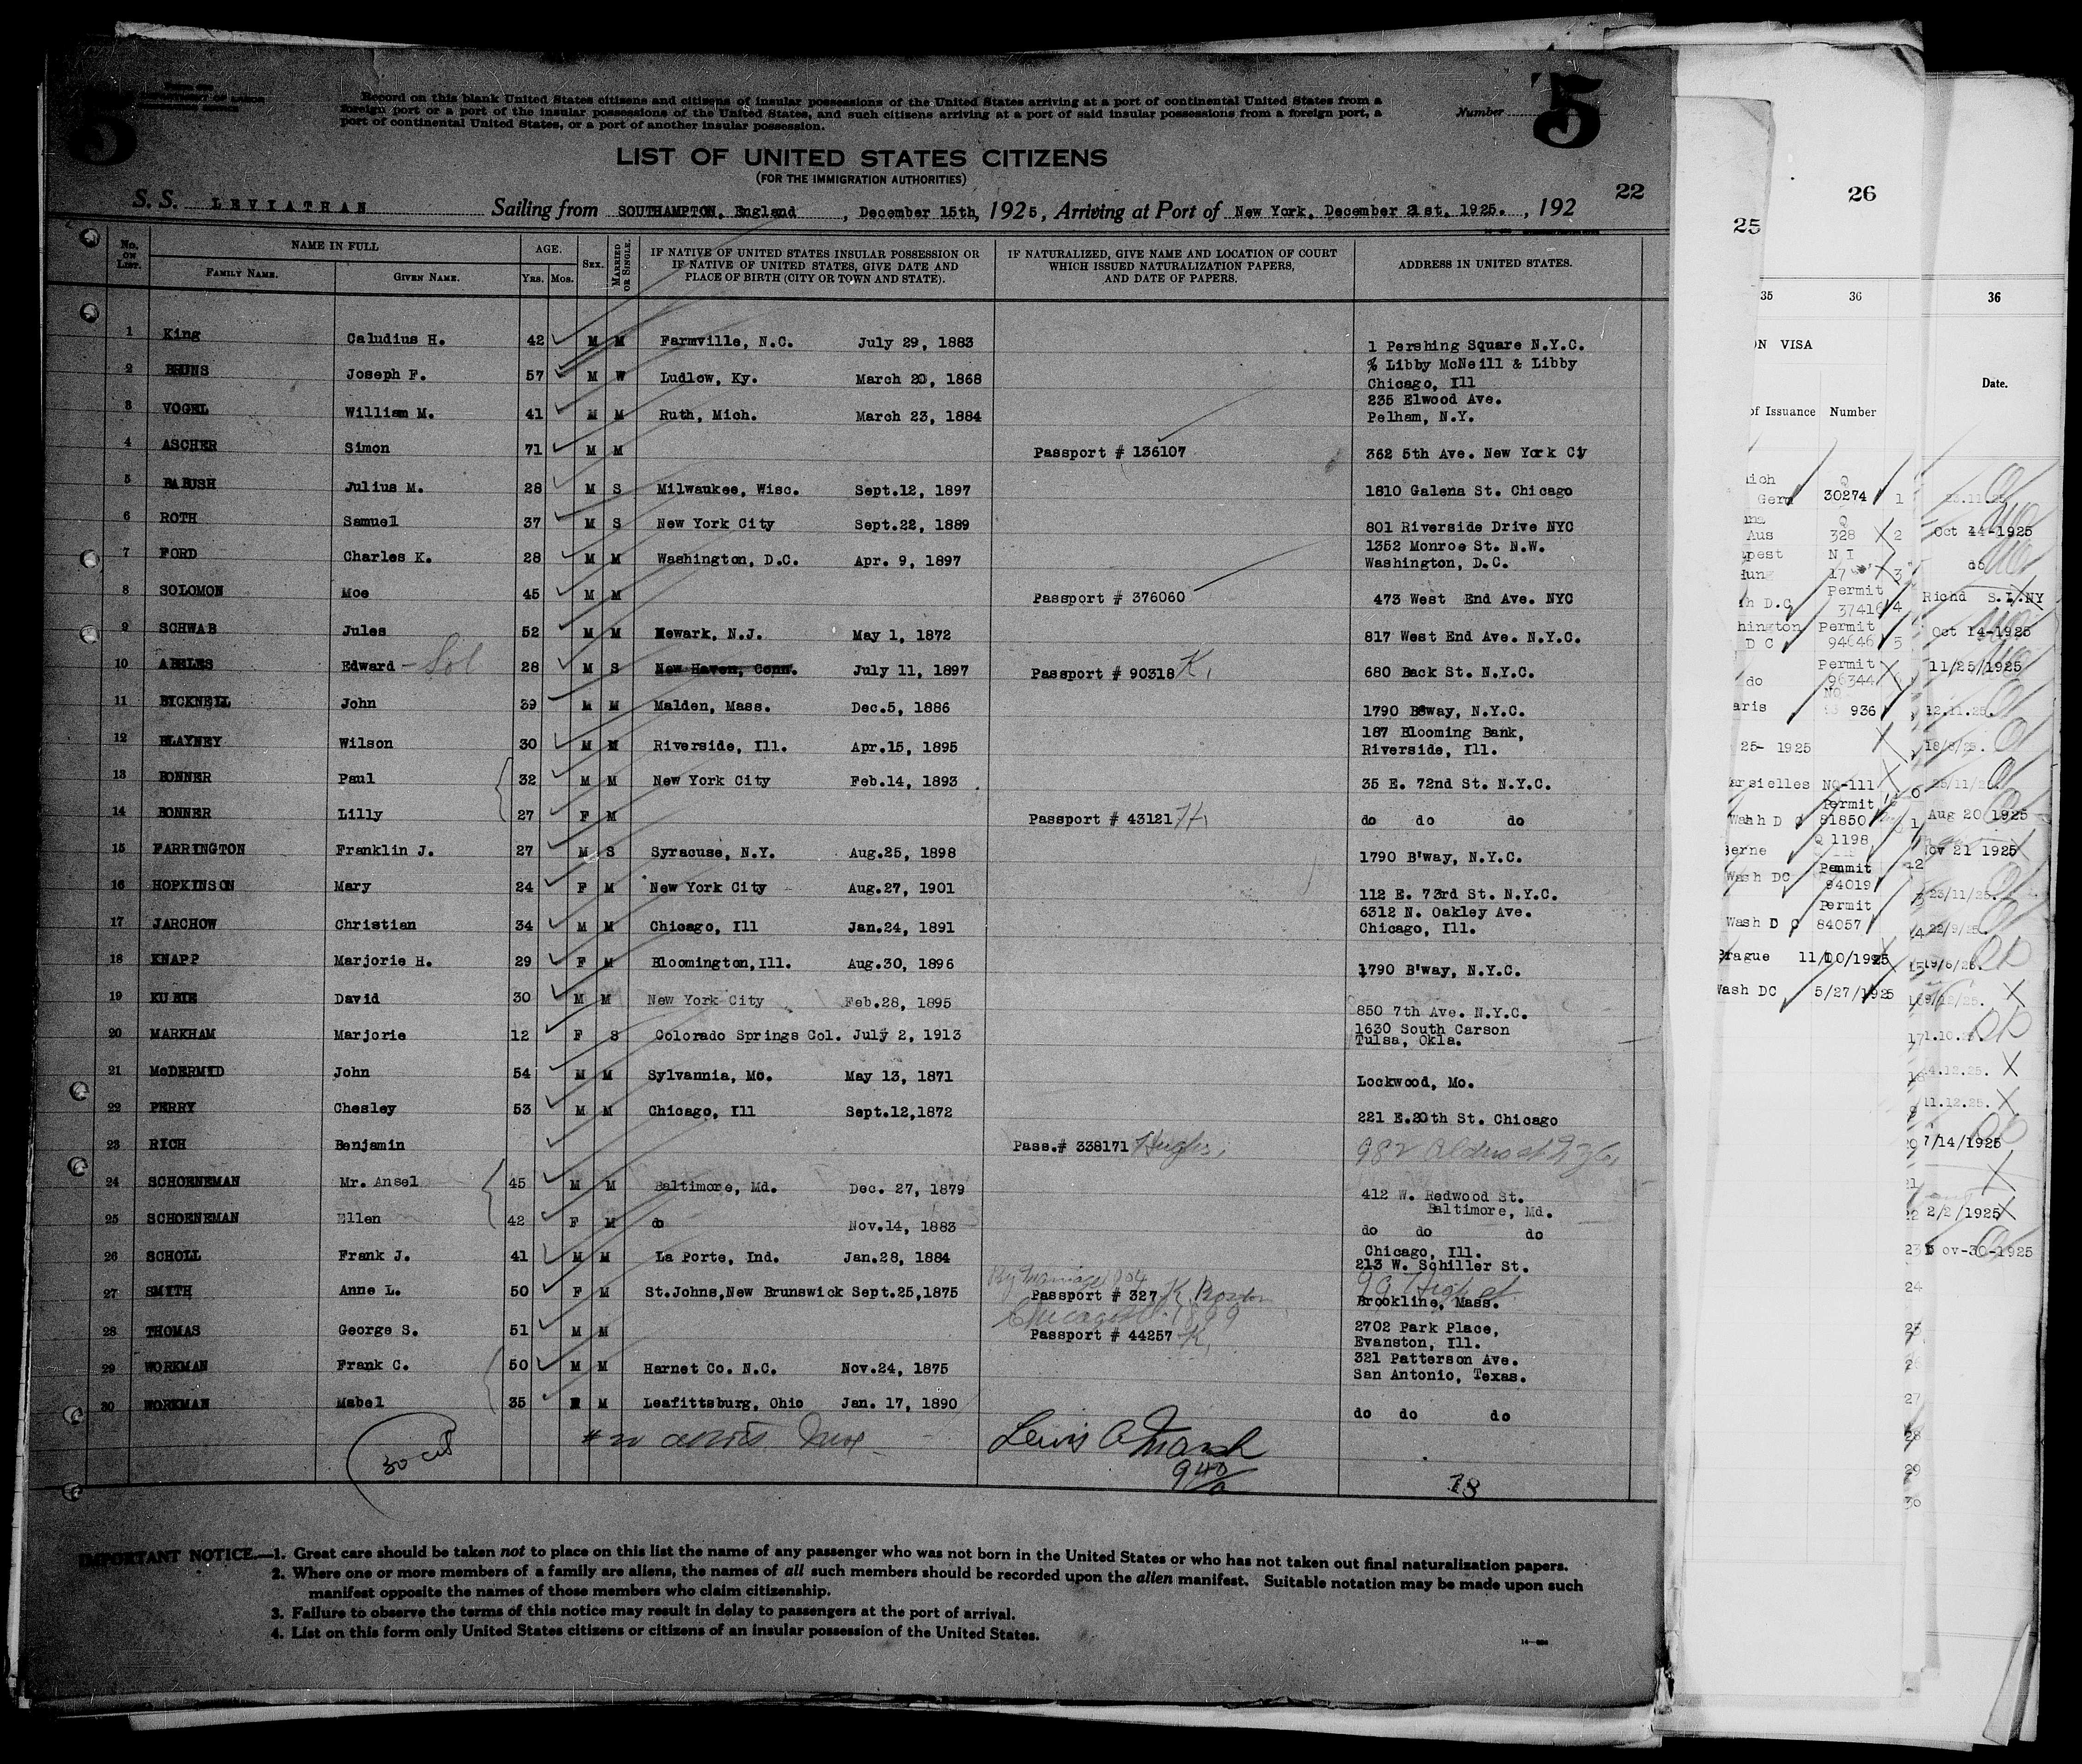 5
Record on this blank United States citizens and citizens of insular possessions of the United States arriving at a port of continental United States from a
foreign port or a port of the insular possessions of the United States, and such citizens arriving at a port of said insular possessions from a foreign port, a
port of continental United States, or a port of another insular possession.
Number 5
LIST OF UNITED STATES CITIZENS
(FOR THE IMMIGRATION AUTHORITIES)
22
S. S. LEVIATHAN Sailing from SOUTHAMPTON, England, December 15th, 1925, Arriving at Port of New York, December 21st, 1925. , 192
No. ON LIST. NAME IN FULL FAMILY NAME. GIVEN NAME. AGE. Yrs. Mos. SEX. MARRIED OR SINGLE. IF NATIVE OF UNITED STATES INSULAR POSSESSION OR IF NATIVE OF UNITED STATES, GIVE DATE AND PLACE OF BIRTH (CITY OR TOWN AND STATE). IF NATURALIZED, GIVE NAME AND LOCATION OF COURT WHICH ISSUED NATURALIZATION PAPERS, AND DATE OF PAPERS. ADDRESS IN UNITED STATES.
1 King Caludius H. 42 M M Farmville, N.C. July 29, 1883 1 Pershing Square N.Y.C.
2 BRUNS Joseph F. 57 M W Ludlow, Ky. March 20, 1868 % Libby McNeill & Libby
Chicago, Ill
3 VOGEL William M. 41 M M Ruth, Mich. March 23, 1884 235 Elwood Ave.
Pelham, N.Y.
4 ASCHER Simon 71 M M Passport # 136107 362 5th Ave. New York Cy
5 BABUSH Julius M. 28 M S Milwaukee, Wisc. Sept.12, 1897 1810 Galena St. Chicago
6 ROTH Samuel 37 M S New York City Sept.22, 1889 801 Riverside Drive NYC
7 FORD Charles K. 28 M M Washington, D.C. Apr. 9, 1897 1352 Monroe St. N.W.
Washington, D.C.
8 SOLOMON Moe 45 M M Passport # 376060 473 West End Ave. NYC
9 SCHWAB Jules 52 M M Newark, N.J. May 1, 1872 817 West End Ave. N.Y.C.
10 ABELES Edward - Sol 28 M S New Haven, Conn. July 11, 1897 Passport # 90318 K, 680 Back St. N.Y.C.
11 BICKNELL John 39 M M Malden, Mass. Dec.5, 1886 1790 Bsway, N.Y.C.
12 BLAYNEY Wilson 30 M M Riverside, Ill. Apr.15, 1895 187 Blooming Bank,
Riverside, Ill.
13 BONNER Paul 32 M M New York City Feb.14, 1893 35 E. 72nd St. N.Y.C.
14 BONNER Lilly 27 F M Passport # 43121 do do do
15 FARRINGTON Franklin J. 27 M S Syracuse, N.Y. Aug.25, 1898 1790 B'way, N.Y.C.
16 HOPKINSON Mary 24 F M New York City Aug.27, 1901 112 E. 73rd St. N.Y.C.
17 JARCHOW Christian 34 M M Chicago, Ill Jan.24, 1891 6312 N. Oakley Ave.
Chicago, Ill.
18 KNAPP Marjorie H. 29 F M Bloomington,Ill. Aug.30, 1896 1790 B'way, N.Y.C.
19 KUBIE David 30 M M New York City Feb.28, 1895 850 7th Ave. N.Y.C.
20 MARKHAM Marjorie 12 F S Colorado Springs Col. July 2, 1913 1630 South Carson
Tulsa, Okla.
21 McDERMYD John 54 M M Sylvannia, Mo. May 13, 1871 Lockwood, Mo.
22 PERRY Chesley 53 M M Chicago, Ill Sept.12,1872 221 E.20th St. Chicago
23 RICH Benjamin Pass.# 338171 Hughs,
24 SCHOENEMAN Mr. Ansel 45 M M Baltimore, Md. Dec. 27, 1879 412 W. Redwood St.
Baltimore, Md.
25 SCHOENEMAN Ellen 42 F M do Nov.14, 1883 do do do
26 SCHOLL Frank J. 41 M M La Porte, Ind. Jan.28, 1884 Chicago, Ill.
213 W. Schiller St.
27 SMITH Anne L. 50 F M St.Johns,New Brunswick Sept.25,1875 By marriage Passport # 327 K 99 High st
Brookline, Mass.
28 THOMAS George S. 51 M M Chicago 1899 Passport # 44257 K, 2702 Park Place,
Evanston, Ill.
29 WORKMAN Frank C. 50 M M Harnet Co. N.C. Nov.24, 1875 321 Patterson Ave.
San Antonio, Texas.
30 WORKMAN Mabel 35 M Leafittsburg, Ohio Jan. 17, 1890 do do do
30
940
78
IMPORTANT NOTICE.—1. Great care should be taken not to place on this list the name of any passenger who was not born in the United States or who has not taken out final naturalization papers.
2. Where one or more members of a family are aliens, the names of all such members should be recorded upon the alien manifest. Suitable notation may be made upon such
manifest opposite the names of those members who claim citizenship.
3. Failure to observe the terms of this notice may result in delay to passengers at the port of arrival.
4. List on this form only United States citizens or citizens of an insular possession of the United States.
25
35 36
VISA
of Issuance Number
Germ 30274 1
Aus 328 2
Hung 17 3
D.C Permit 37416 4
Permit
D C 94646 5
Permit
do 96344
936
25- 1925
NQ-111
Permit
D C 81850
Q 1198
Wash DC Permit
94019
Permit
Wash D C 84057
11/10/1925
Wash DC 5/27/1925
26
36
Date.
Oct 14-1925
do
Richd S.I.NY
Oct 14-1925
11/25/1925
12.11.25.
Aug 20 1925
Nov 21 1925
23/11/25.
22/9/25.
11.12.25.
7/14/1925
2/2/1925
24
27
28
29
30